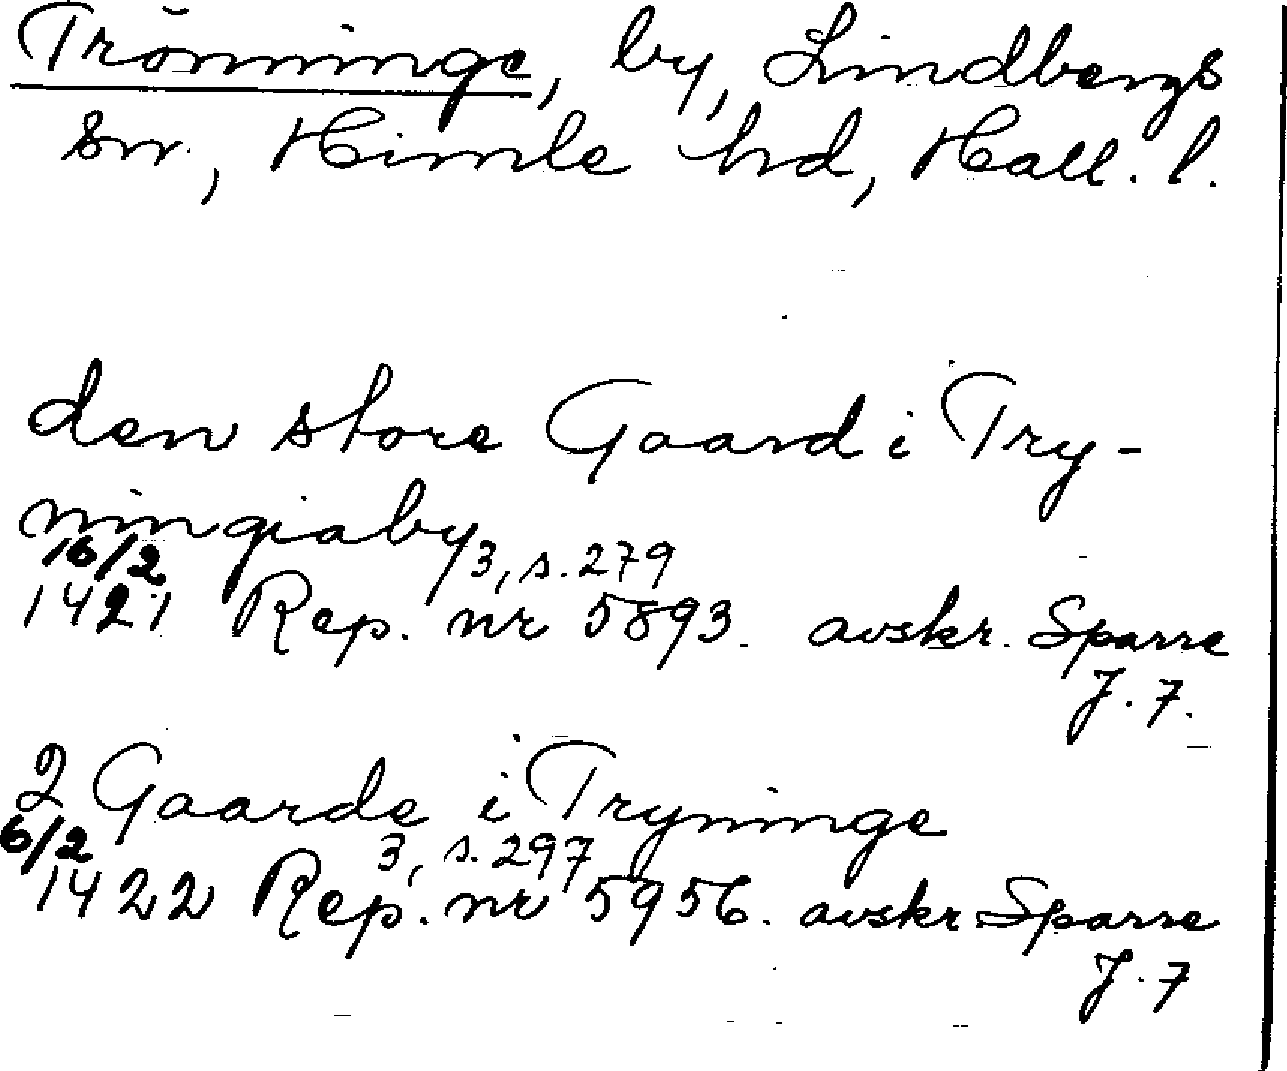 Trönninge, by, Lindbergs
sn., Himle hd, Hall. l.
den store Gaard i Try-
ningiaby
16/2 3, s. 279
1421 Rep. nr 5893. avskr. Sparre
J. 7.
2 Gaarde i Tryninge
6/2 3, s. 297
1422 Rep. nr 5956. avskr. Sparre
J. 7